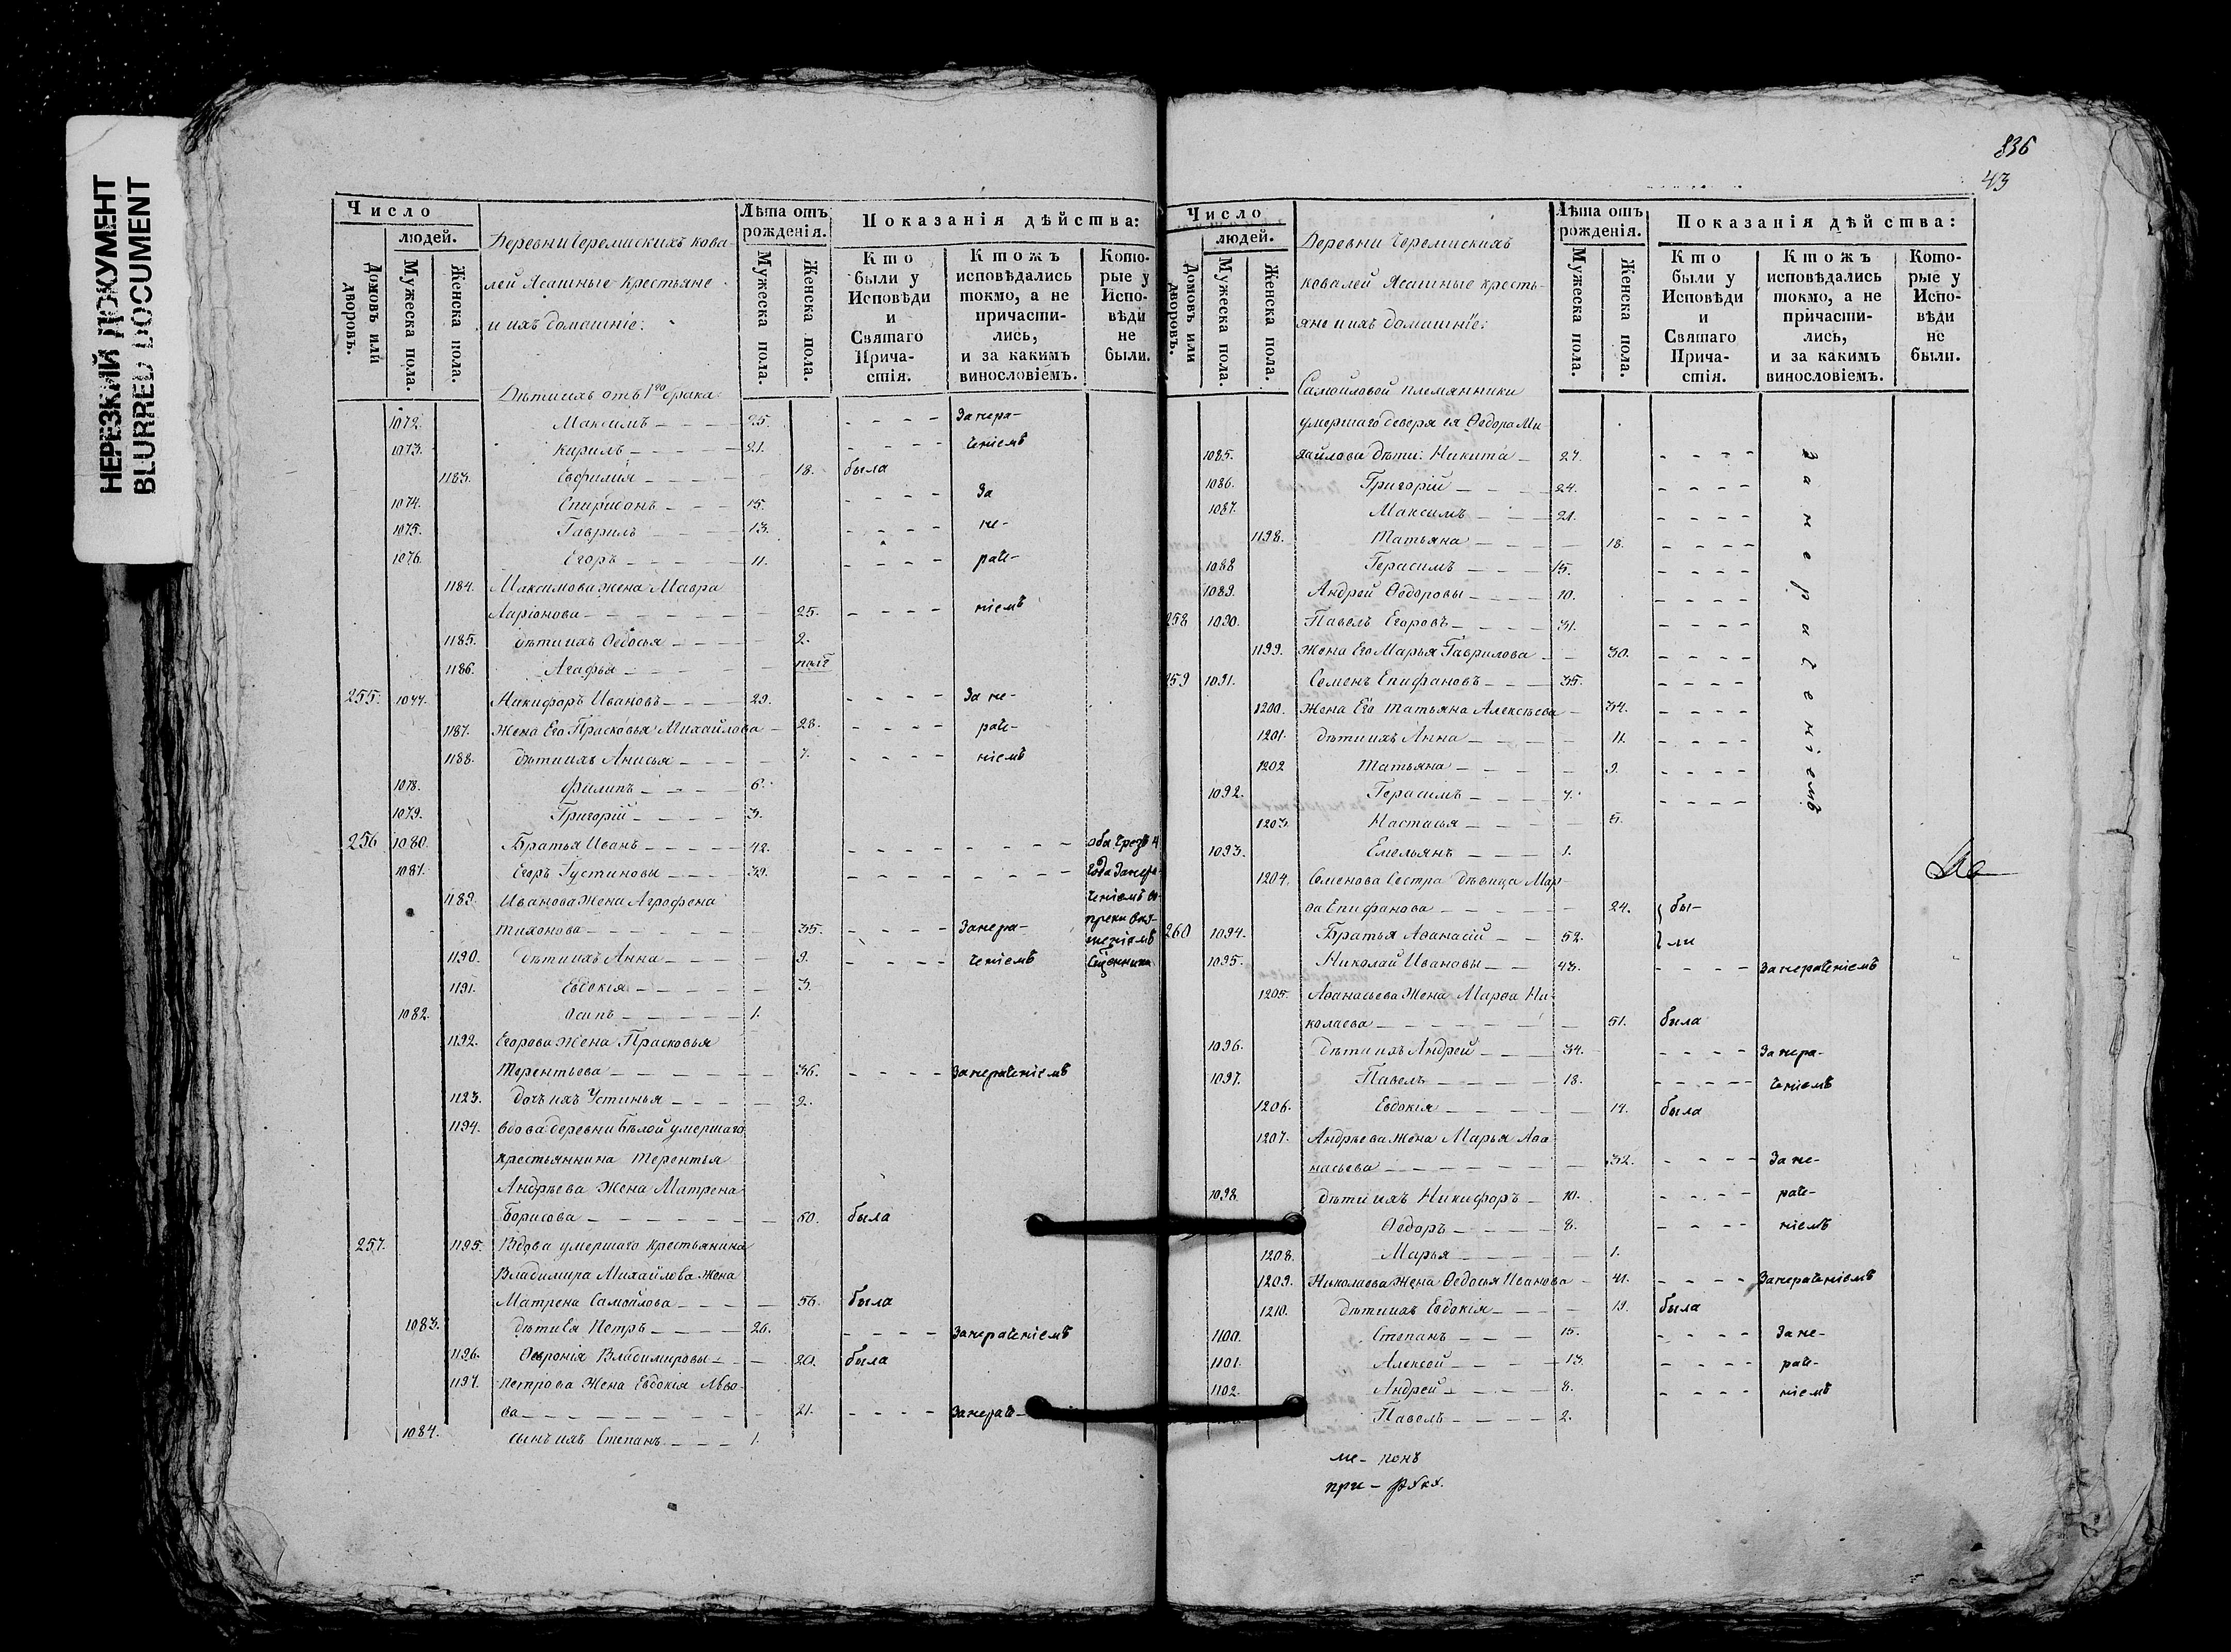 НЕРЕЗКИЙ ДОКУМЕНТ
BLURRED DOCUMENT
Число
людей.
Домовъ или дворовъ.
Мужеска пола.
Женска пола.
Деревни Черемискихъ кова-
лей Ясашные крестьяне
и ихъ домашніе:
Лѣта отъ рожденія.
Мужеска пола.
Женска пола.
Показанія дѣйства:
Кто были у Исповѣди и Святаго Прича-стія.
Ктожъ исповѣдались токмо, а не причасти-лись, и за какимъ винословіемъ.
Кото-рые у Испо-вѣди не были.
Дѣти ихъ отъ 1го брака:
1072. Максимъ 25. занера-
1073. Кирилъ 21. ченіемъ
1183. Евфимия 18. была
1074. Спиридонъ 15. За
1075. Гаврилъ 13. не-
1076. Егоръ 11. рач-
1184. Максимова жена Мавра
Ларіонова 25. ніемъ
1185. дѣти ихъ Ѳедосья 2.
1186. Агафья полг
255. 1077. Никифоръ Ивановъ 29. За не-
1187. Жена Его Прасковья Михайлова 28. рач-
1188. дѣти ихъ Анисья 7. ніемъ
1078. Филипъ 6.
1079. Григорій 3.
256 1080. Братья Иванъ 42. оба чрезъ 4
1081. Егоръ Густиновы 39. года занера-
1189. Иванова жена Агрофена ченіемъ во-
Тихонова 35. Занера- преки
1190. Дѣти ихъ Анна 9. ченіемъ Сщенника
1191. Евдокія 3.
1082. Осипъ 1.
1192. Егорова жена Прасковья
Терентьева 36. занераченіемъ
1123. дочь ихъ Устинья 2.
1194. вдова деревни Бѣлой умершаго
крестьяннина Терентья
Андрѣева жена Матрена
Борисова 50. была
257. 1195. Вдова умершаго крестьянина
Владимира Михайлова жена
Матрена Самойлова 56. была
1083. дѣти Ея Петръ 26. занераченіемъ
1196. Ѳевронія Владимировы 20. была
1197. Петрова Жена Евдокія Льво-
ва 21. занерач-
1084. сынъ ихъ Степанъ 1.
836
43
Число
людей.
Домовъ или дворовъ.
Мужеска пола.
Женска пола.
Деревни Черемискихъ
ковалей Ясашные кресть-
яне и ихъ домашніе:
Лѣта отъ рожденія.
Мужеска пола.
Женска пола.
Показанія дѣйства:
Кто были у Исповѣди и Святаго Прича-стія.
Ктожъ исповѣдались токмо, а не причасти-лись, и за какимъ винословіемъ.
Кото-рые у Испо-вѣди не были.
Самойловой племянники
умершаго деверя ея Ѳедора Ми-
хайлова дѣти: Никита 27.
1085.
занераченіемъ
1086. Григорій 24.
1087. Максимъ 21.
1198. Татьяна 18.
1088 Герасимъ 15.
1089. Андрей Ѳедоровы 10.
258 1090. Павелъ Егоровъ 31.
1199. Жена Его Марья Гаврилова 30.
259 1091. Семенъ Епифановъ 35.
1200. Жена Его Татьяна Алексѣева 34.
1201. дѣти ихъ Анна 11.
1202 Татьяна 9.
1092. Герасимъ 7.
1203. Настасья 5.
1093. Емельянъ 1.
1204. Семенова Сестра дѣвица Мар-
ѳа Епифанова 24. бы-
260 1094. Братья Аѳанасій 52. ли
1095. Николай Ивановы 43. занераченіемъ
1205. Аѳанасьева Жена Марѳа Ни-
колаева 51. была
1096. дѣти ихъ Андрей 34. Занера-
1097. Павелъ 18. ченіемъ
1206. Евдокія 14. была
1207. Андрѣева жена Марья Аѳа
насьева 32. Зане-
1098 дѣти ихъ Никифоръ 10. рач-
Ѳедоръ 8. ніемъ
1208. Марья 1.
1209. Николаева жена Ѳедосья Иванова 41. Занераченіемъ
1210. дѣти ихъ Евдокія 19. была
1100. Степанъ 15. Зане-
1101. Алексей 13. рач-
1102. Андрей 8. ніемъ
Павелъ 2.